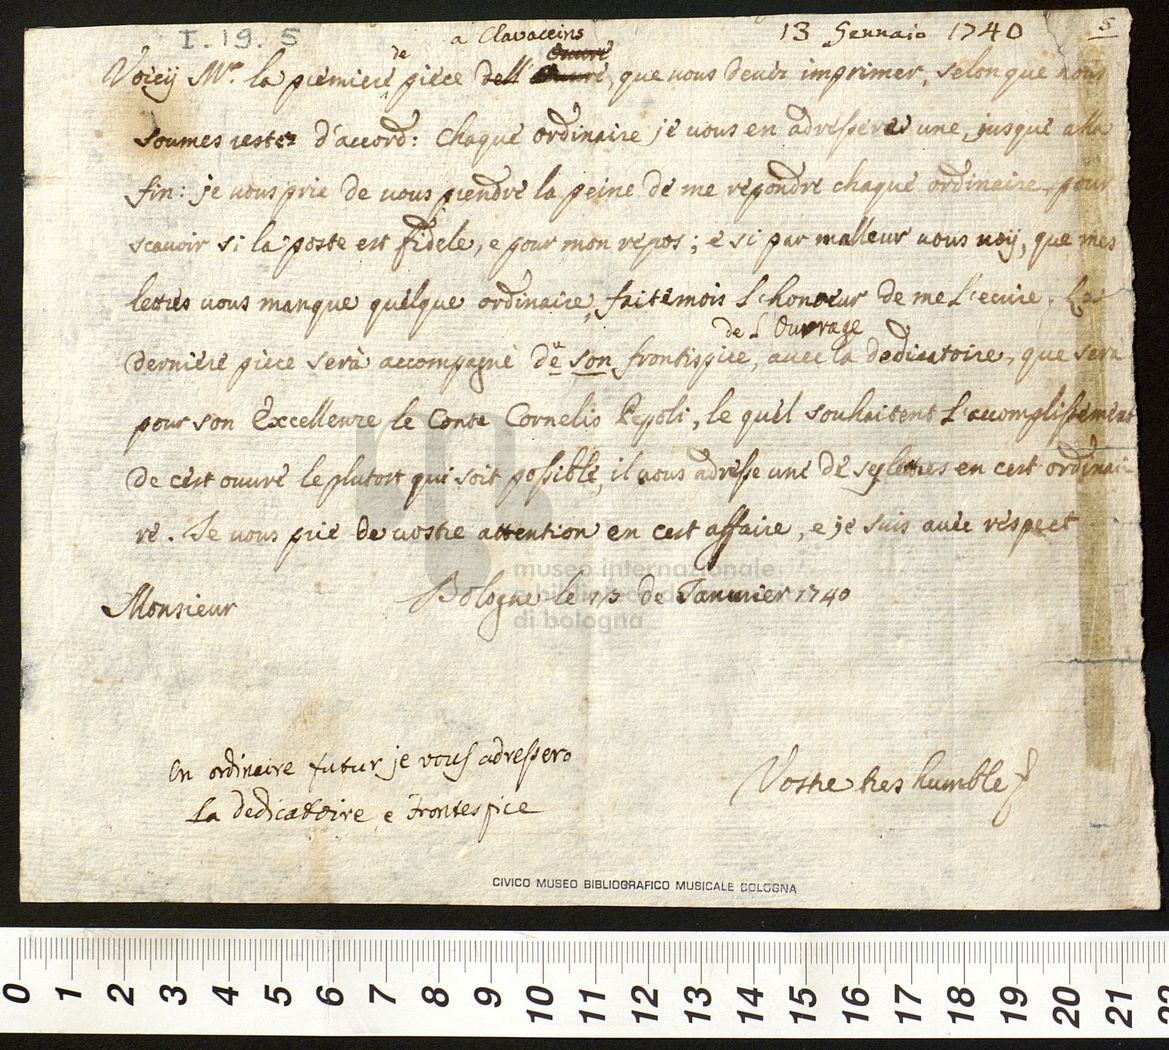 I. 19. 5
13 Gennaio 1740
5
de a Clavaceins
Voicy Mr. la piemiere piece dell' Ouvre, que vous deviz imprimer, selon que nous
soumes restez d'accord: chaque ordinaire je vous en adresseres une, jusque alla
fin: je vous prie de vous prendre la peine de me repondre chaque ordinaire, pour
scavoir si la poste est fidele, e pour mon repos; e si par malleur vous voij, que mes
lettres vous manque quelque ordinaire, faitemois L'honneur de me L'ecrire. La
de L'Ouvrage
derniere piece serà accompagnè de son frontispice, avec la dedicatoire, que sera
pour son Excellenze le Conte Cornelio Pepoli, le quel souhaitent L'accomplissement
de cest ouvre le plutost qui soit possible, il vous adresse une de sy lettres en cest ordinai
re. Je vous prie de vostre attention en cest affaire, e je suis avec respect
Monsieur
Bologne le 13 de Janvier 1740
En ordineire futur je vous adressero
la dedicatoire e Frontespice
Vostre tres humble
museo internazionale
di bologna
CIVICO MUSEO BIBLIOGRAFICO MUSICALE BOLOGNA
0 1 2 3 4 5 6 7 8 9 10 11 12 13 14 15 16 17 18 19 20 21 22